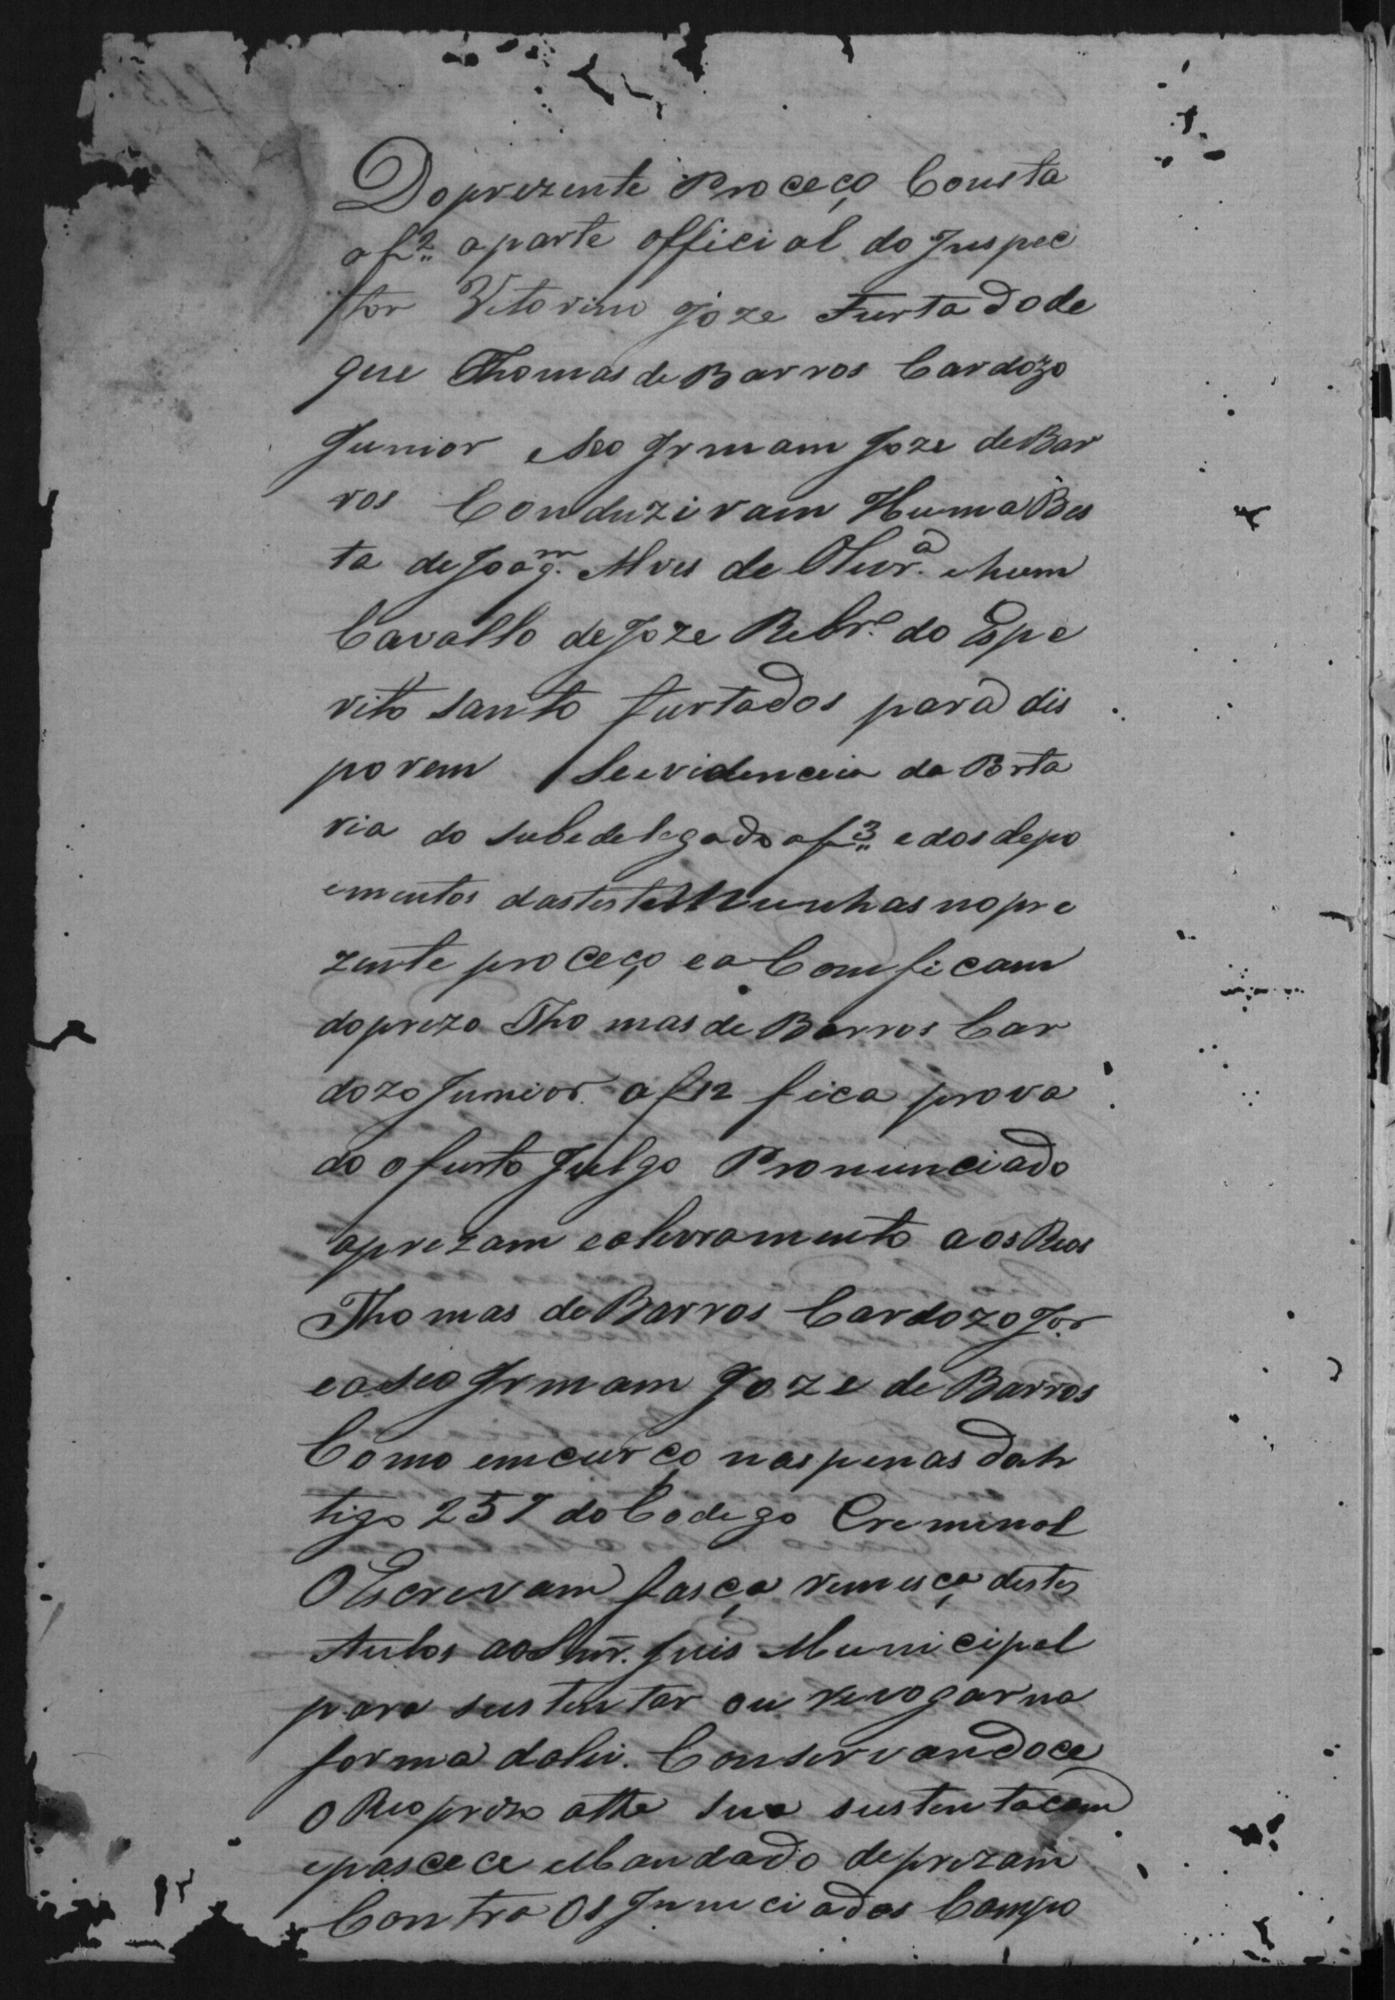 Do prezente Proceço Consta
a f 2 a parte official do Inspec
tor Vitorino Joze Furtado de
que Thomas de Barros Cardozo
Junior e seo Irmam Joze de Bar
ros Conduziram Huma Bes
ta de Joaqm. Alves de Olivra. e hum
Cavallo de Joze Rebr.o do Espe
rito Santo furtados para dis
porem Se evidenceia da Porta
ria do Subedelegado a f 3 e dos depo
ementos das testemunhas no pre
zente proceço e a Comficam
do prezo Thomas de Barros Car
dozo Junior a f 12 fica prova
do o furto Julgo Pronunciado
a prezam e a livramento aos Reos
Thomas de Barros Cardozo Jor
e a seo Irmam Joze de Barros
Como emcurço nas penas do Ar
tigo 257 do Codego Creminal
O Escrevam fasça remesça destes
Autos ao Snr. Juis Municipal
para sustentar ou revogar na
forma da lei. Conservandoce
o Reo prezo athe sua sustentacam
e pascece Mandado de prezam
Contra Os Inunciados Campo